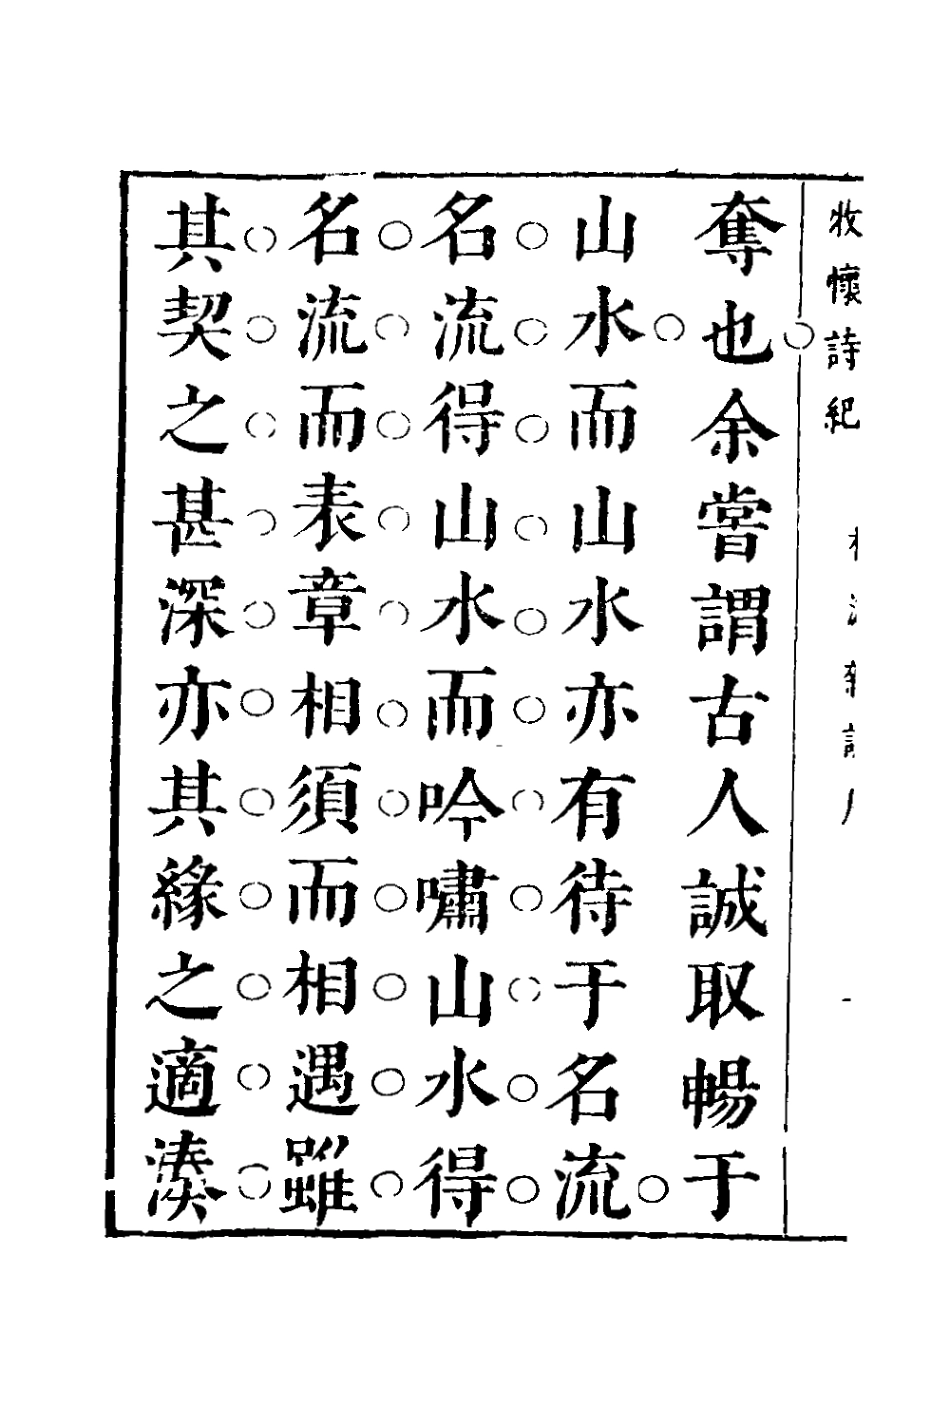 牧懷詩紀
奪也余嘗謂古人誠取暢于
山水而山水亦有待于名流
名流得山水而吟嘯山水得
名流而表章相須而相遇雖
其契之甚深亦其緣之適湊